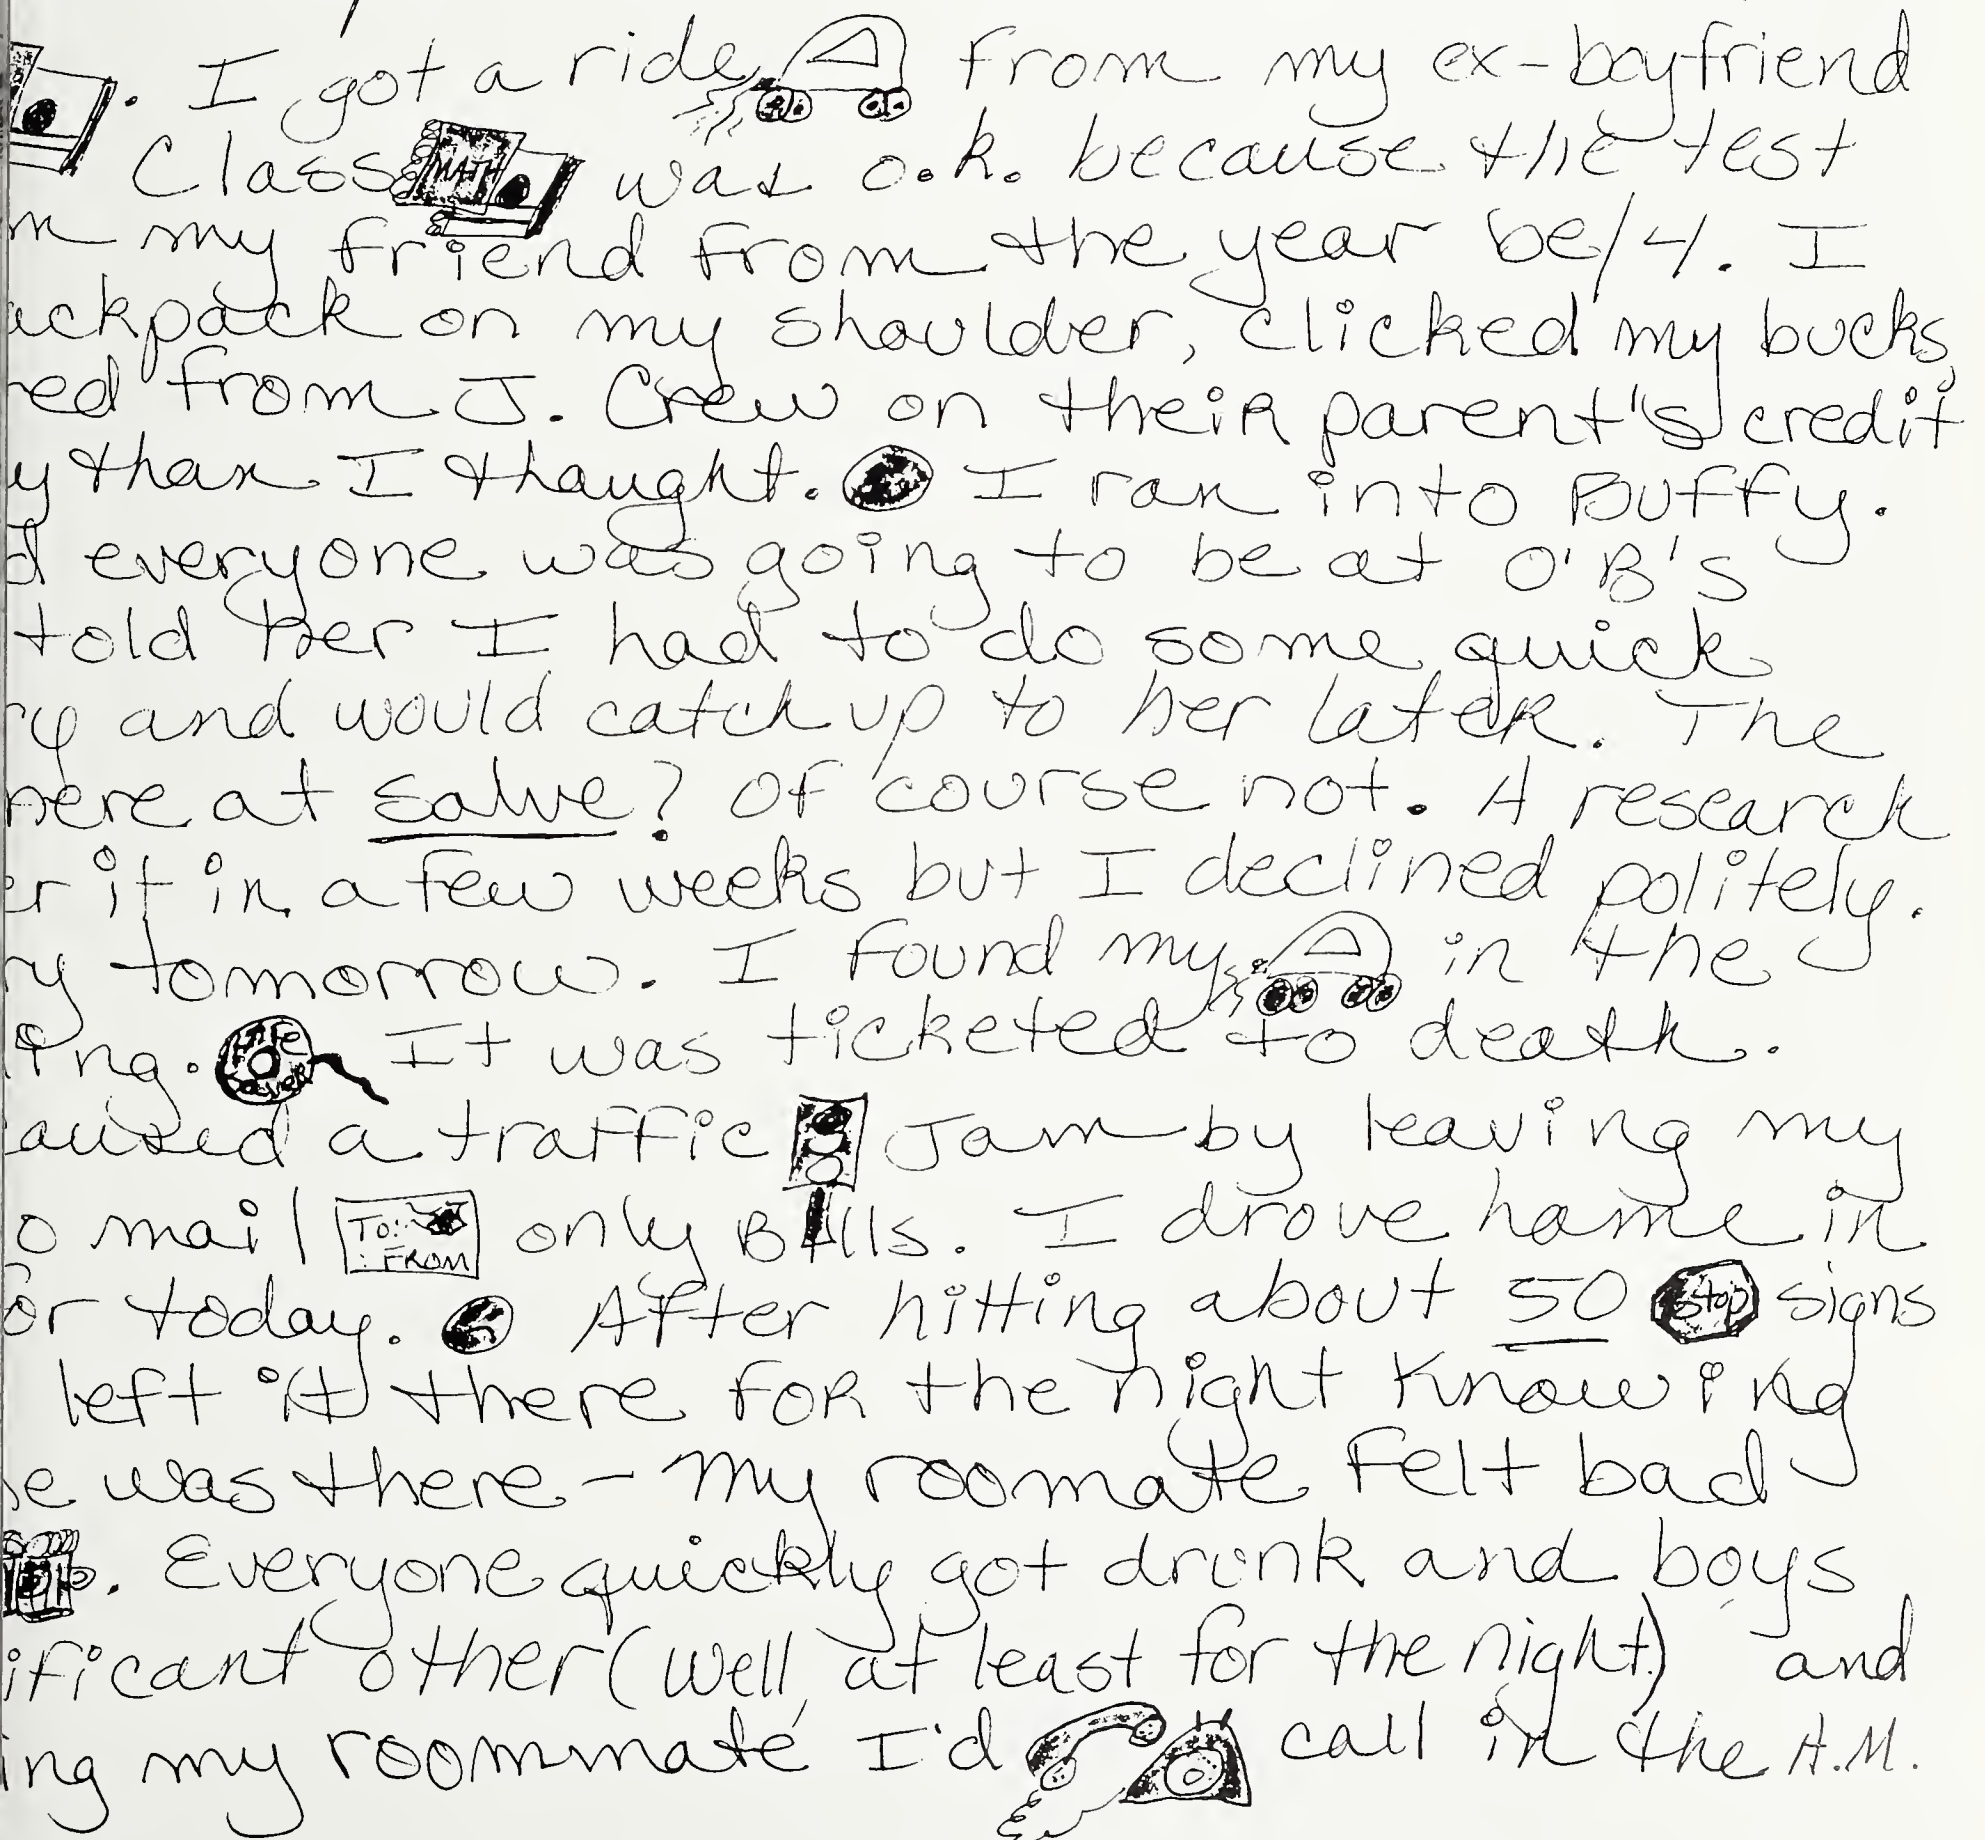 . I got a ride from my ex-boyfriend
Class MATH was o.k. because the test
m my friend from the year be/4. I
ackpack on my shoulder, clicked my bucks,
red from J. Crew on their parent's credit
y than I thought. I ran into Buffy.
d everyone was going to be at O'B's
told her I had to do some quick
ry and would catch up to her later. The
here at salve? Of course not. A research
er it in a few weeks but I declined politely.
ry tomorrow. I found my in the
ing. It was ticketed to death.
aused a traffic Jam by leaving my
o mail TO: FROM only Bills. I drove home in
or today. After hitting about 50 Stop signs
left it there for the night knowing
e was there - my roomate felt bad
. Everyone quickly got drunk and boys
ificant other (well, at least for the night) and
ing my roommate I'd call in the A.M.